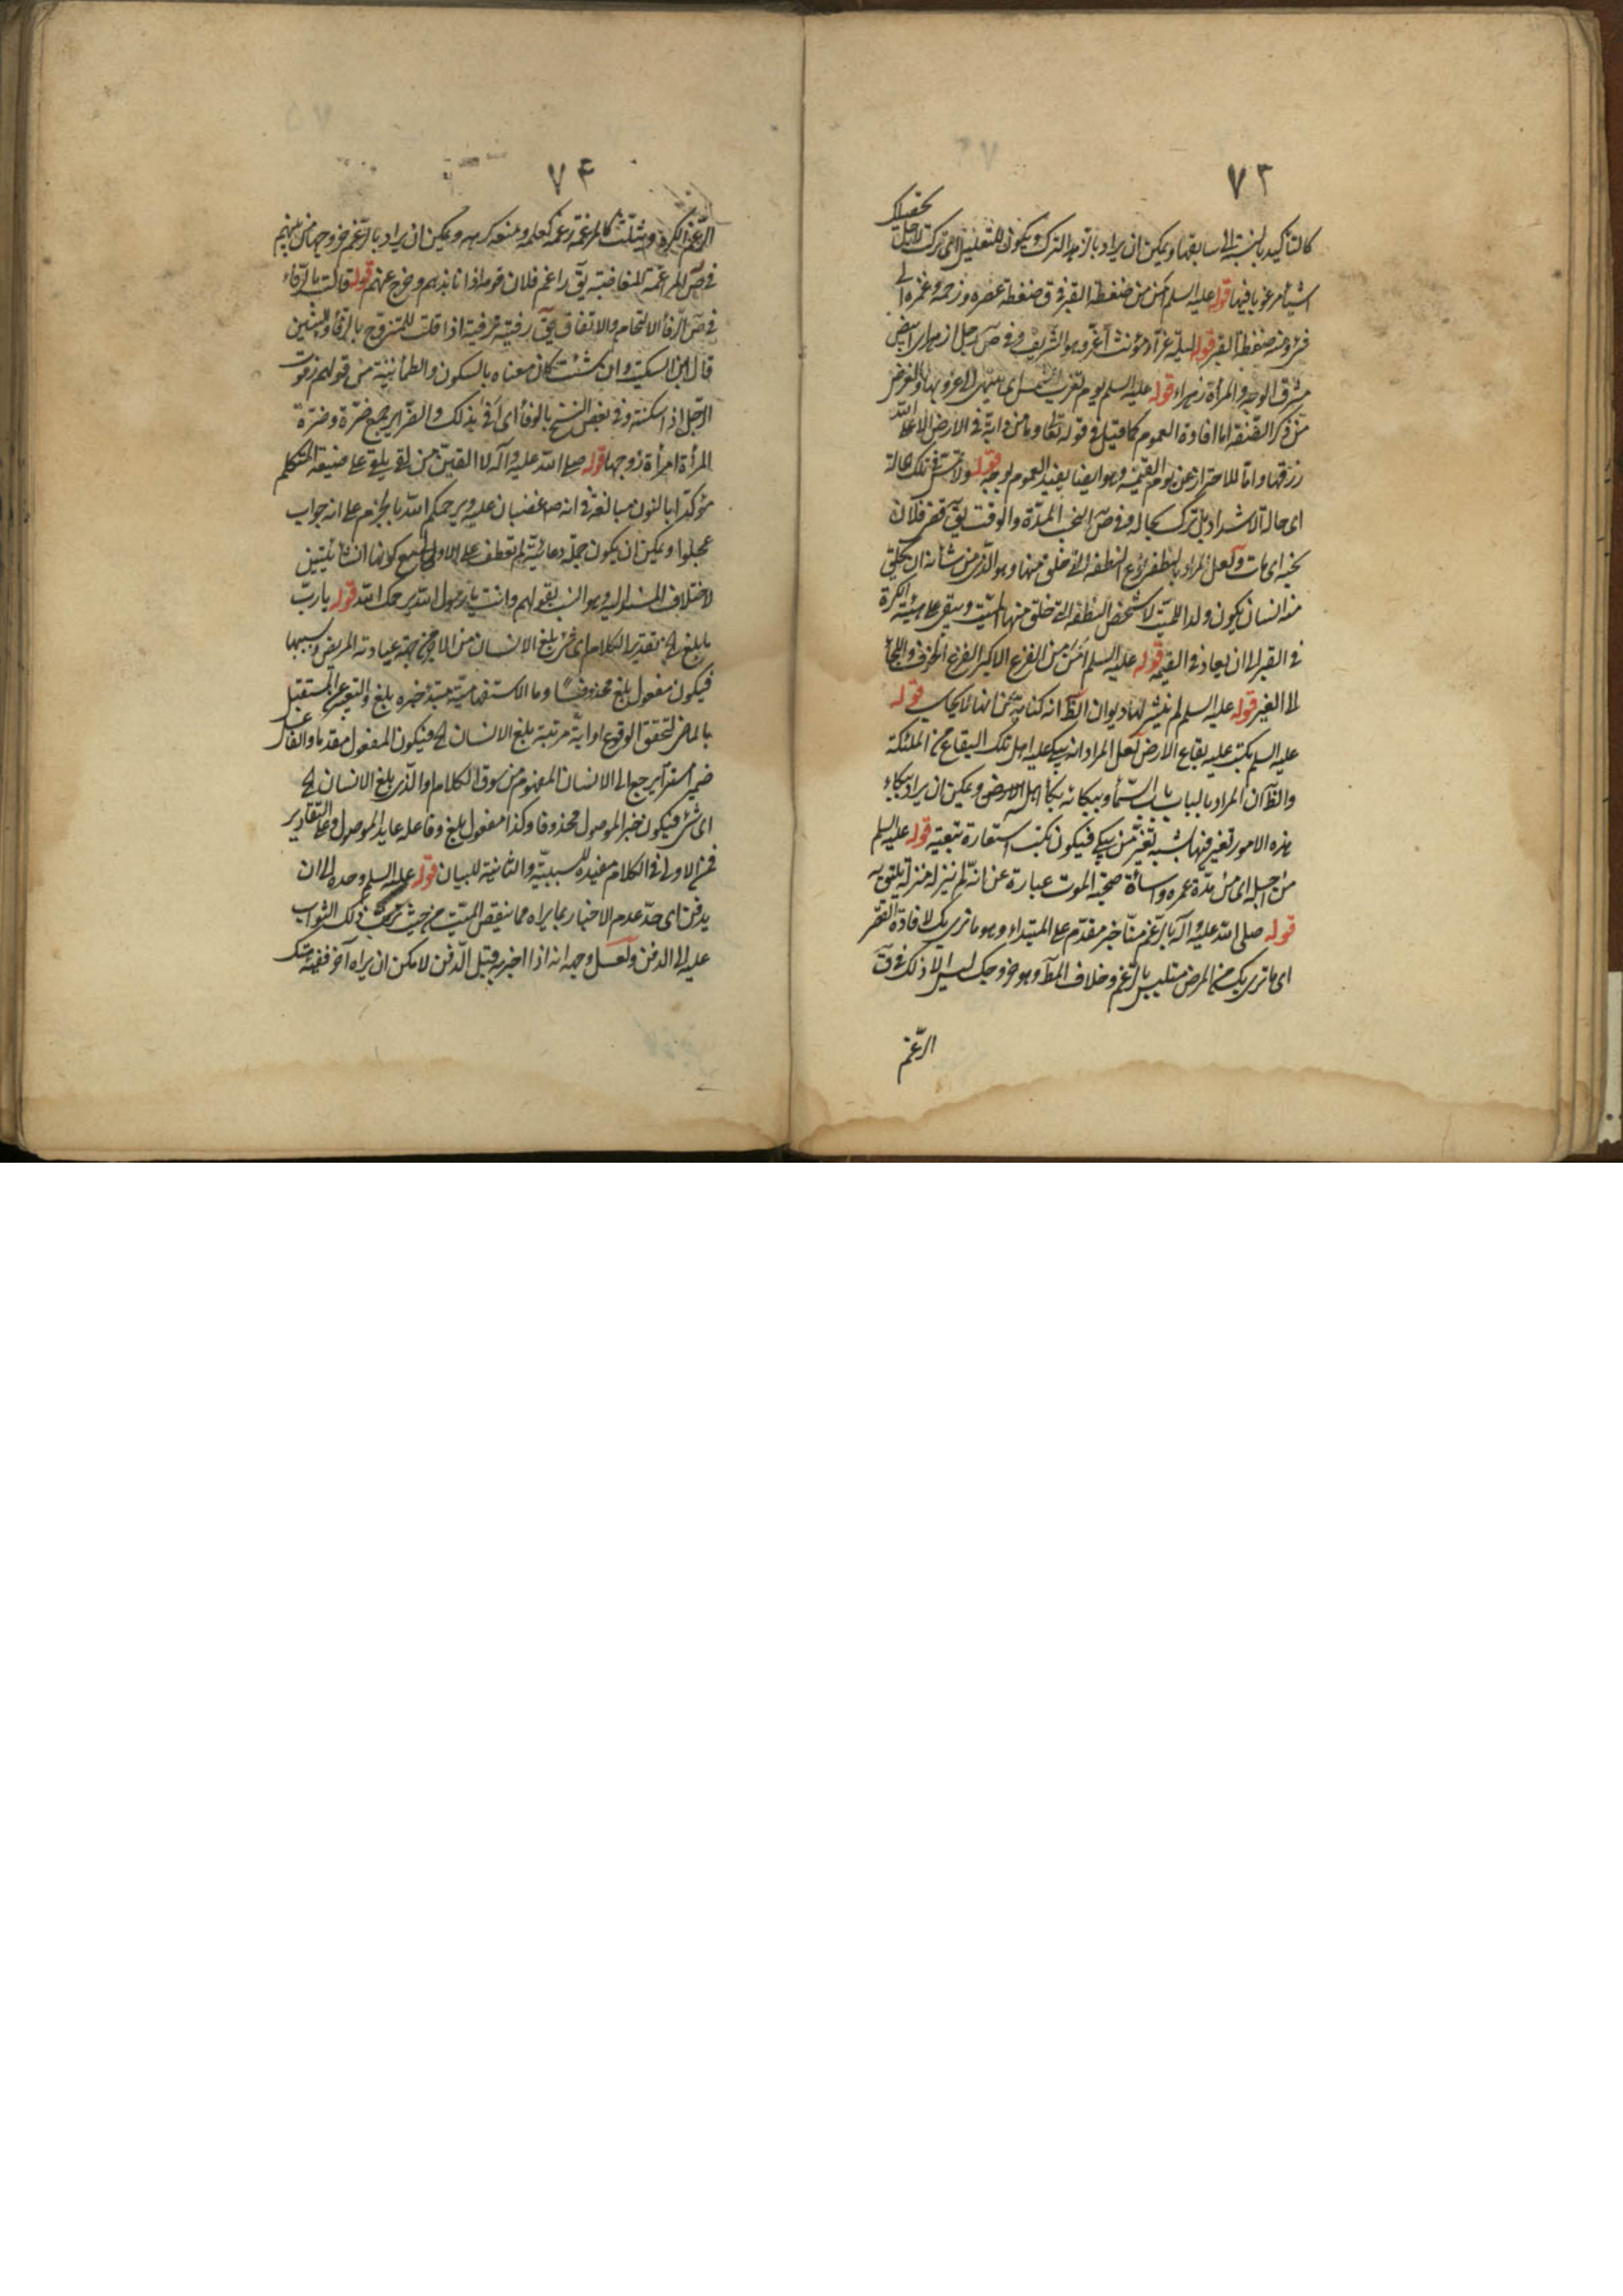 ٧٣
كالتأكيد بالنسبة الى سابقها ويمكن ان يراد بالزهد الترك ويكون للتعليل اى تركت لاجل تحقيرك
اشياء مرغوبا فيها قوله عليه السلم أمن من ضغطة القبر فى ق ضغطه عصره وزحمه وغمزه الى
شئ ومنه ضغطة القبر قوله ليلة غراء مؤنث أغر وهو الشريف وفى ص رجل ازهر اى ابيض
مشرق الوجه والمرأة زهراء قوله عليه السلم يوم تغرب الشمس اى ينتهى الى غروبها والغرض
من ذكر القنقه اما افادة العموم كما قيل فى قوله تعا وما من دابة فى الارض الا على الله
رزقها واما للاحتراز عن يوم القيمة وهو ايضا يفيد العموم لوجه قوله ولا تمش فى تلك حالة
اى حالة الاشراد بل ترك بحاله وفى ص النحب المدة والوقت يق قضى فلان
نحبه اى مات ولعل المراد بالنطفة نوع النطفة التى خلق منها وهو الذى من شأنه ان يخلق
منه انسان يكون ولدا للميت لا شخص النطفة التى خلق منها الميت ويبقى على هيئته الكرة
فى القبر الى ان يعاد فى القيمة قوله عليه السلم أمن من الفزع الاكبر الفزع الخوف والالتجاء
الى الغير قوله عليه السلم لم ينشر لها ديوان الظ انه كناية عن انها لا تحاسب قوله
عليه السلم بكت عليه بقاع الارض لعل المراد انه يبكى عليه اهل تلك البقاع من الملئكة
والظ ان المراد بالباب باب السماء وببكائه بكاء اهل الارض ويمكن ان يراد ببكاء
هذه الامور تغير فيها يشبه تغير من يبكى فيكون بكت استعارة تبعية قوله عليه السلم
من اجله اى من مدة عمره واساءة صحبة الموت عبارة عن انه لم ينزله منزلة يليق به
قوله صلى الله عليه وآله بالرغم منا خبر مقدم على المبتداء وهو ما نرى بك لافادة القصر
اى ما نرى بك من المرض متلبس بالرغم وخلاف المط وهو خروجك ليس الا ذلك فى ق
الرغم
٧٤
الرغم الكره ويثلث كالمرغمة رغمه كعلمه ومنعه كرهه ويمكن ان يراد بالرغم خروجها من بينهم
فى ص المراغمة المغاضبة يق راغم فلان قومه اذا نابذهم وخرج عنهم قوله قالت بالرفاء
فى ص الرفاء الالتحام والاتفاق يق رفيته ترفية اذا قلت للمتزوج بالرفاء والبنين
قال ابن السكيت وان شئت كان معناه بالسكون والطمأنينة من قولهم رفوت
الرجل اذا سكنته وفى بعض النسخ بالوفاء اى أفى بذلك والضراير جمع ضرة وضرة
المرأة امرأة زوجها قوله صلى الله عليه وآله لا القين من لقى يلقى على صيغة المتكلم
مؤكدا بالنون مبالغة فى انه ص غضبان عليه ويرحمكم الله بالجزم على انه جواب
عجلوا ويمكن ان يكون جملة دعائية لم تعطف على الاولى مع كونهما انشائيتين
لاختلاف المسند اليه وهو انسب بقولهم وانت يا رسول الله يرحمك الله قوله يا رب
ما بلغ الخ تقدير الكلام اى شئ بلغ الانسان من الاجر من جهة عيادته المريض وسببها
فيكون مفعول بلغ محذوفا وما الاستفهامية مبتدء خبره بلغ والتعبير عن المستقبل
بالماضى لتحقق الوقوع او اية مرتبة بلغ الانسان الخ فيكون المفعول مقدما والفاعل
ضمير استقر يرجع الى الانسان المفهوم من سوق الكلام او الذى بلغ الانسان الخ
اى شئ فيكون خبر الموصول محذوفا وكذا مفعول بلغ وفاعله عايد الموصول وعلى التقادير
فمن الاولى فى الكلام مفيدة للسببية والثانية للبيان قوله عليه السلم وحده الى ان
يدفن اى حد عدم الاخبار بما يراه مما ينقص الميت من حيث ترتب ذلك الثواب
عليه الى الدفن ولعل وجهه انه اذا اخبر به قبل الدفن لامكن ان يراه آخر